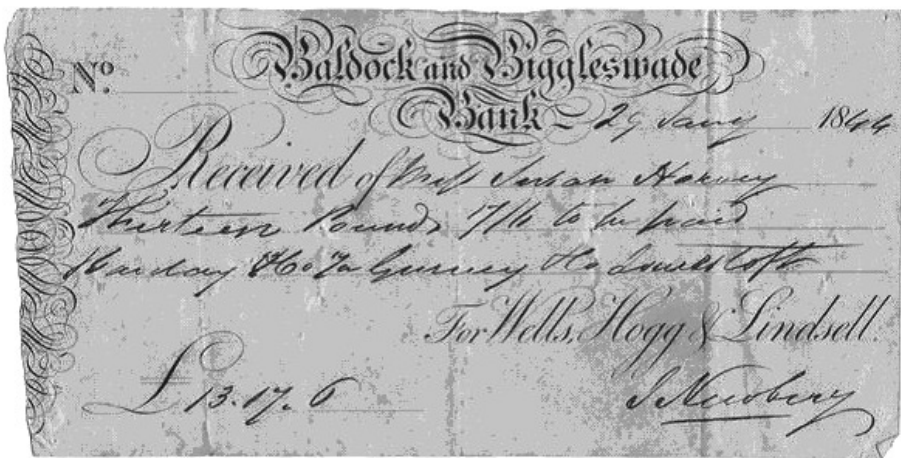 Baldock and Biggleswade
No.
Bank - 29 Jany 1844
Received of Miss Susan Harvey
Thirteen Pounds 17/6 to be paid
Barclay & Co To Gurney & Co Lowestoft
For Wells, Hogg & Lindsell.
£ 13.17.6
J Newbery